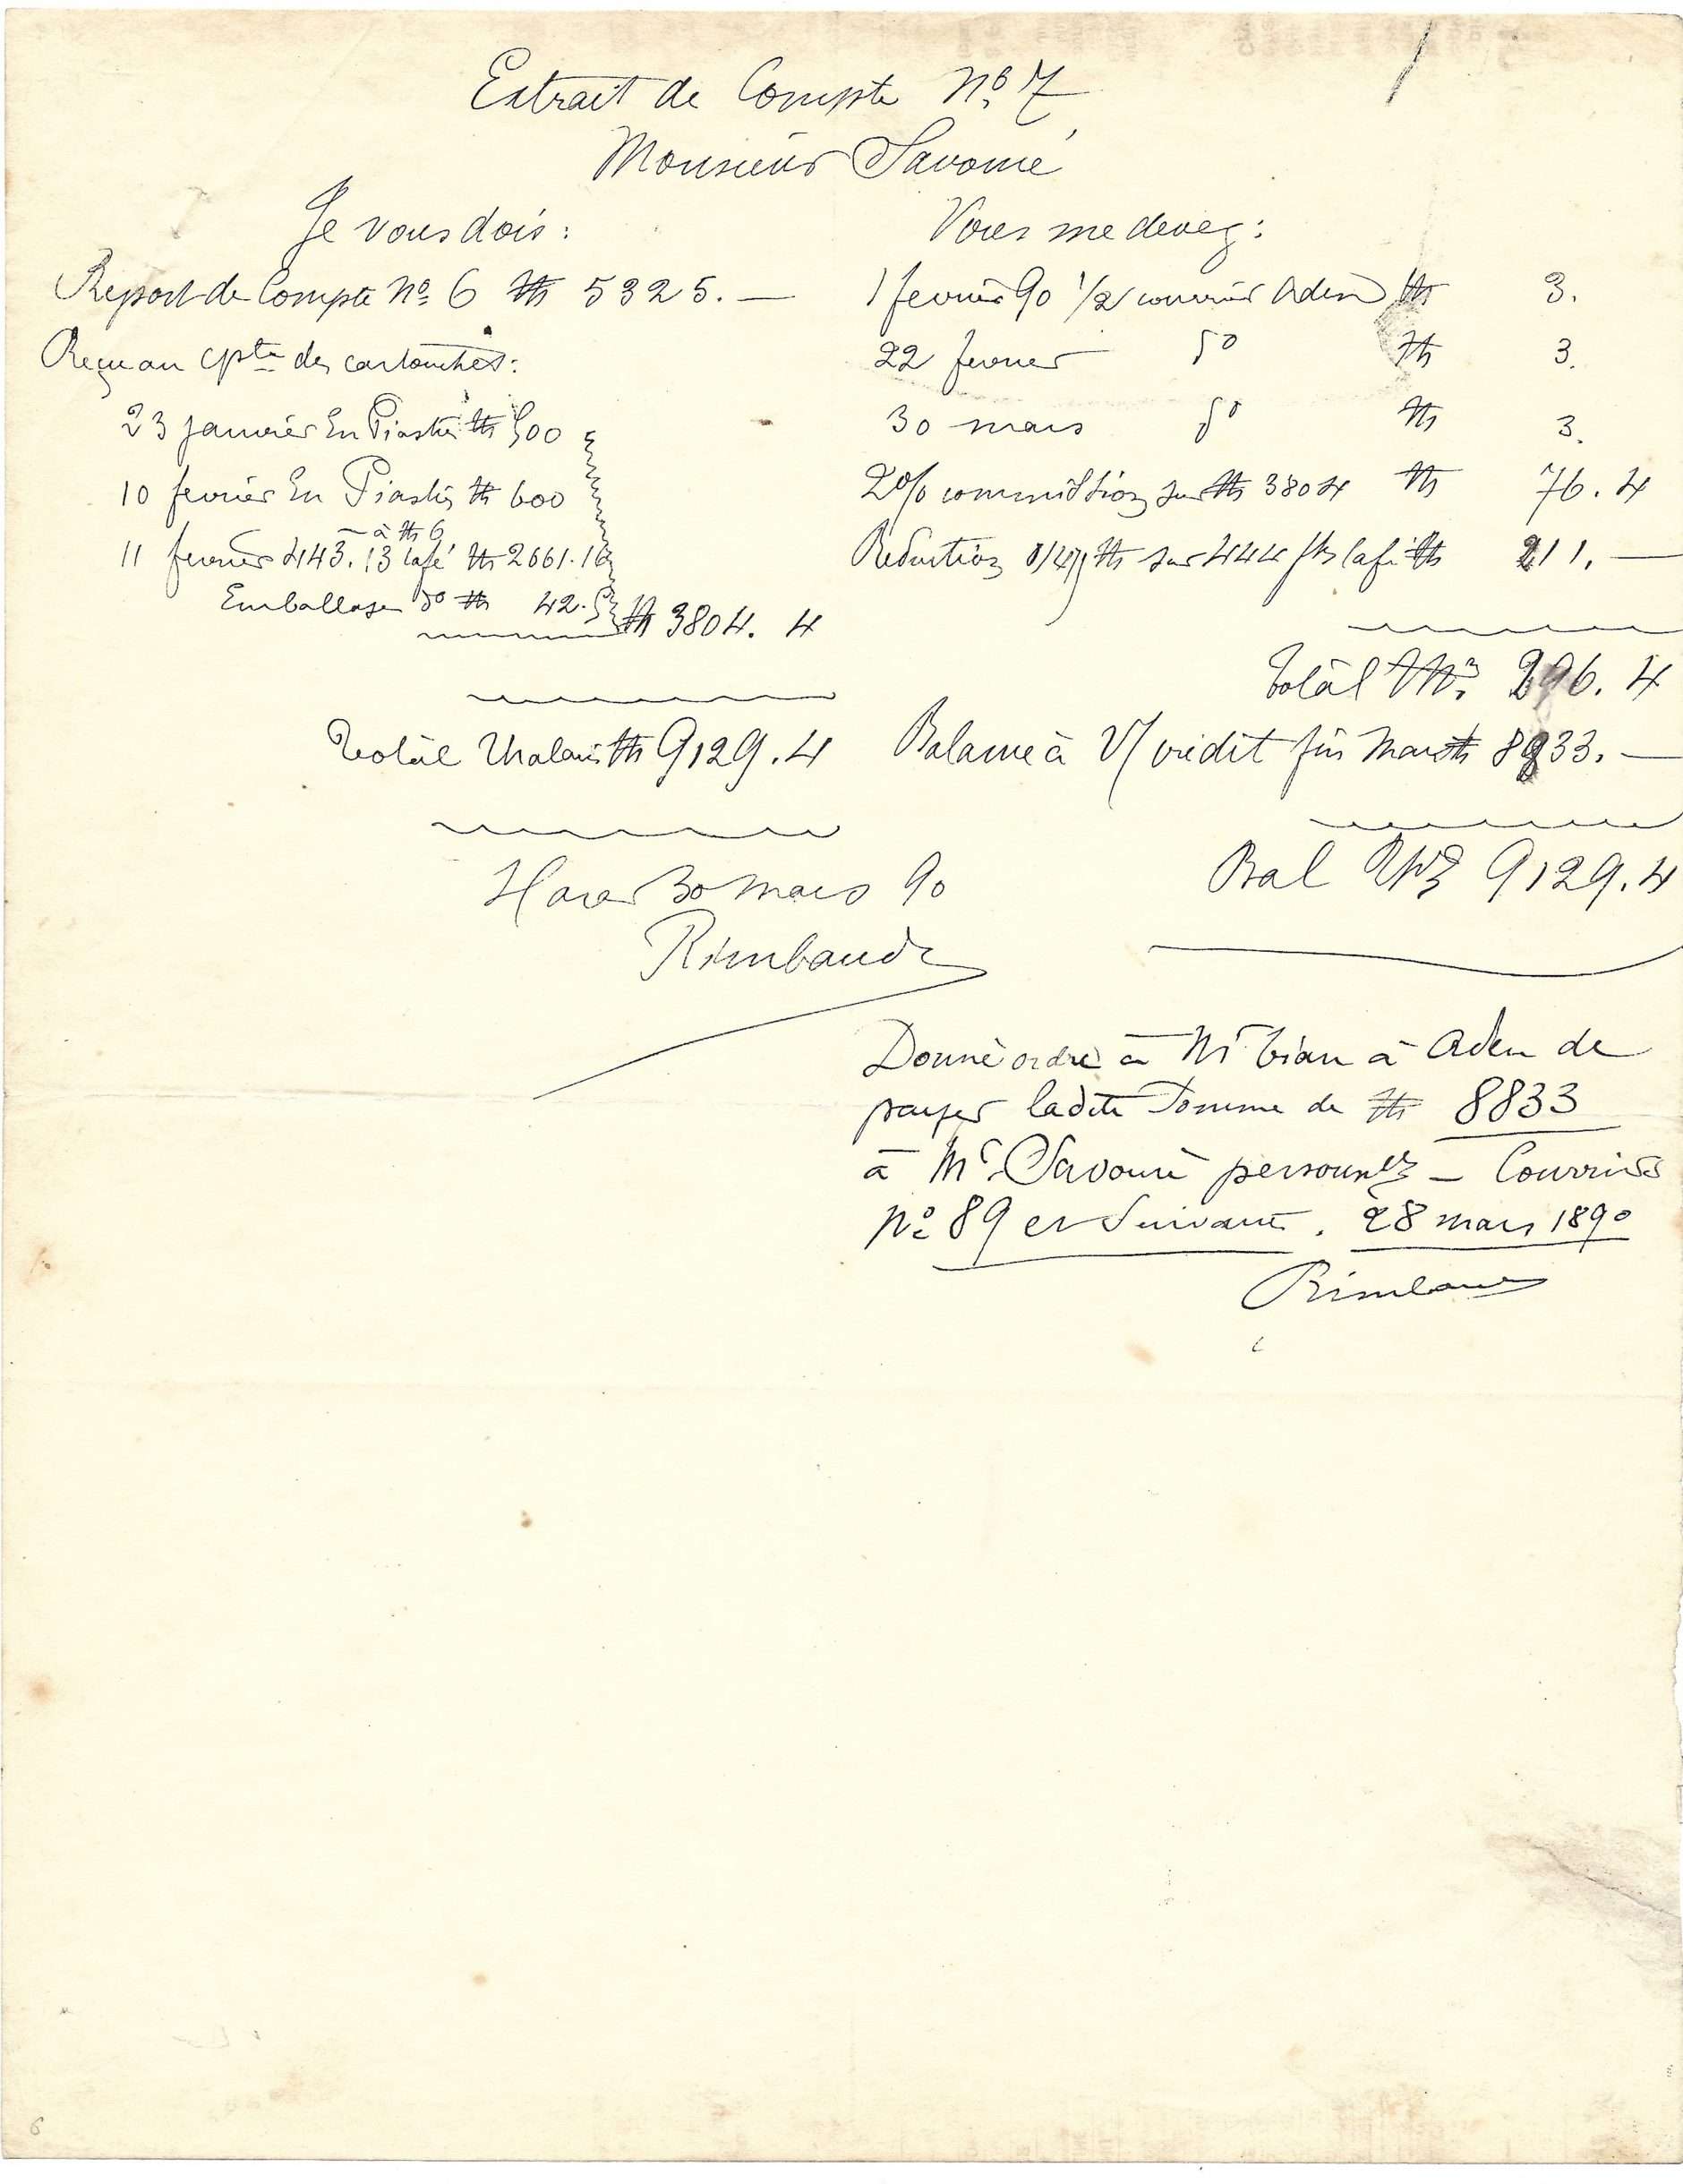 Extrait de Compte Nº 7
Monsieur Savouré
Je vous dois :
Report de Compte Nº 6 Th 5325. —
Reçu au cpte des cartouches :
23 janvier En Piastres Th 500
10 fevrier En Piastres Th 600
— à Th 6
11 fevrier 443.13 café Th 2661.16
Emballage dº Th 42.
Th 3804. 4
Total Thalaris Th 9129.4
Harar 30 mars 90
Rimbaud
Vous me devez :
1 fevrier 90 1/2 courrier Aden Th 3.
22 fevrier dº Th 3.
30 mars dº Th 3.
2% commission sur Th 3804 Th 76.4
Reduction Th sur 444 café Th 211. —
Total Th 296.4
Balance à V/ crédit fin Mars Th 8833. —
Bal Th 9129.4
Donné ordre à Mr Tian à Aden de
payer ladite somme de Th 8833
à Mr Savouré — Courrier
Nº 89 et Suivant. 28 mars 1890
Rimbaud
6